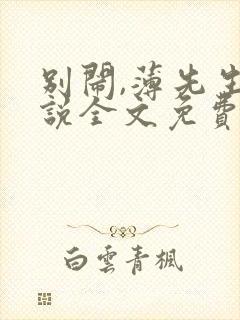 别鬧,薄先生
說全文免費
白雲青楓